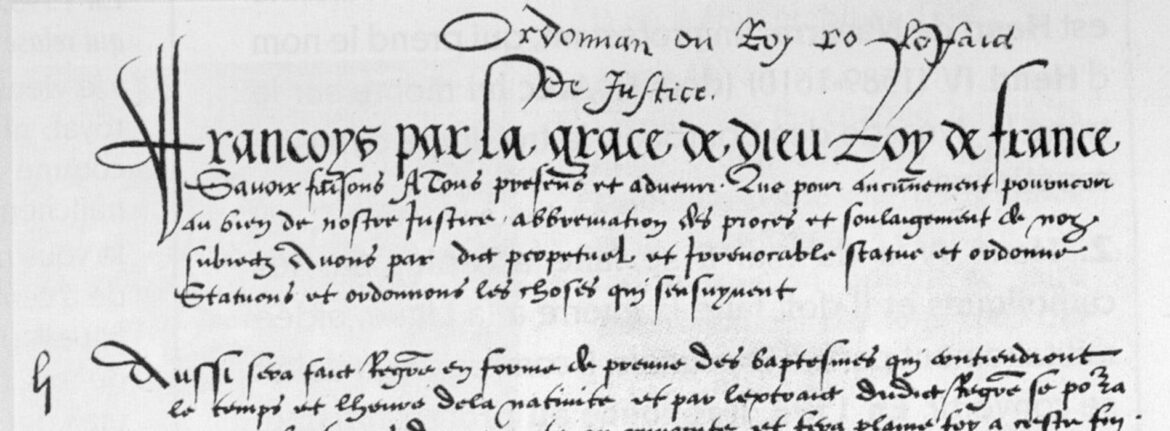 Ordonnan du Roy de Justice.
Françoys par la grace de dieu Roy de france
Savoir faisons A Tous presens et advenir. Que pour aucunement pourveoir
au bien de nostre Justice, abbreviation des proces et soulaigement de noz
subiectz Avons par dict perpetuel et Irrevocable statue et ordonne
Statuons et ordonnons les choses qui sensuyvent
Aussi sera faict Regre en forme de preuve des baptesmes qui contiendront
le temps et lheure dela nativite et par lextraict dudict Regre se pora
et fera plaine foy a ceste fin